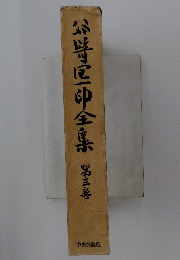 谷崎潤一郎全集
第三巻
中央公論社